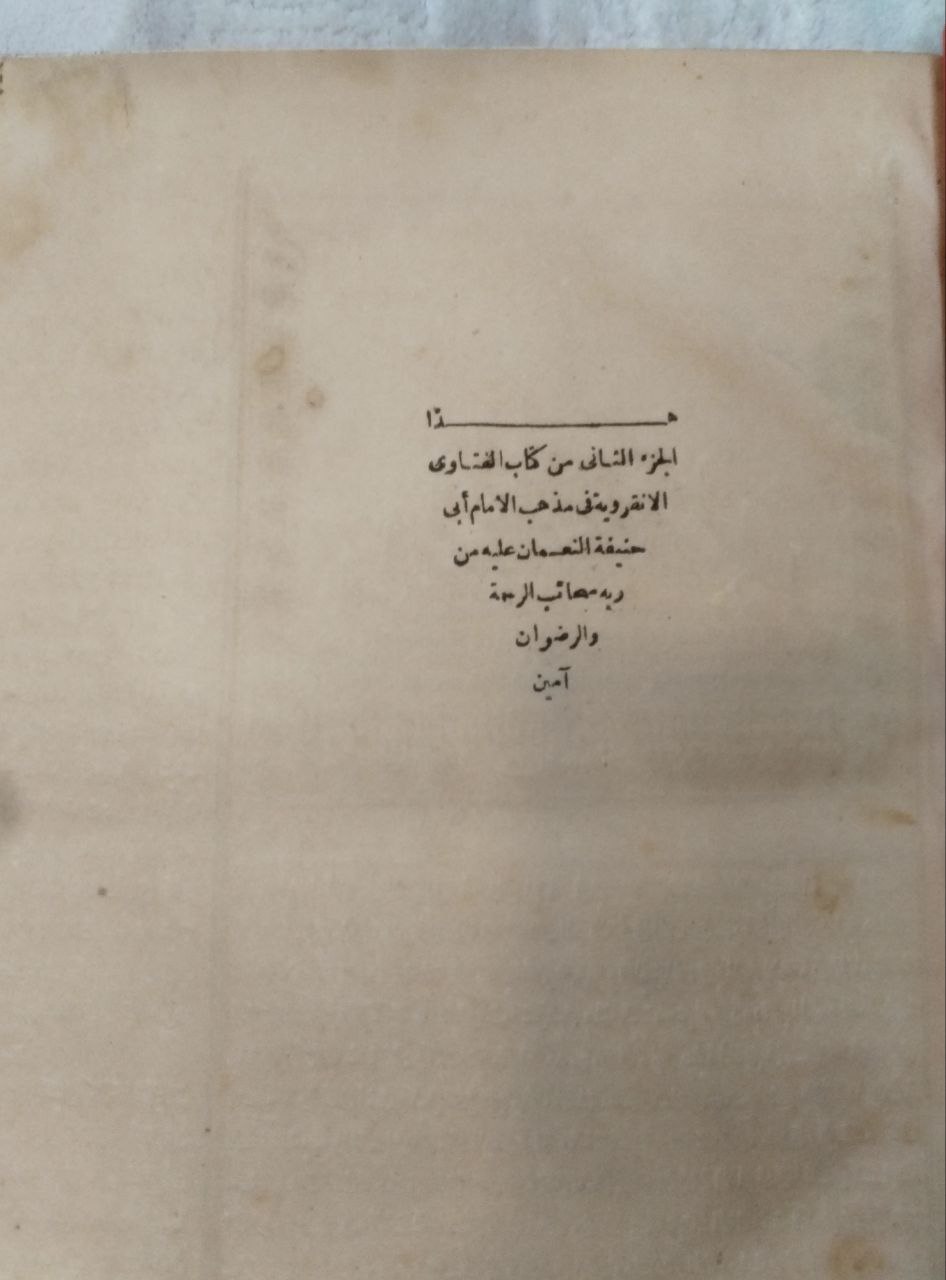 هـــــــــــــــــذا
الجزء الثانى من كتاب الفتاوى
الانقرويةفى مذهب الامام أبى
حنيفة النعـمان عليه من
ربه سحائب الرحمة
والرضوان
آمين